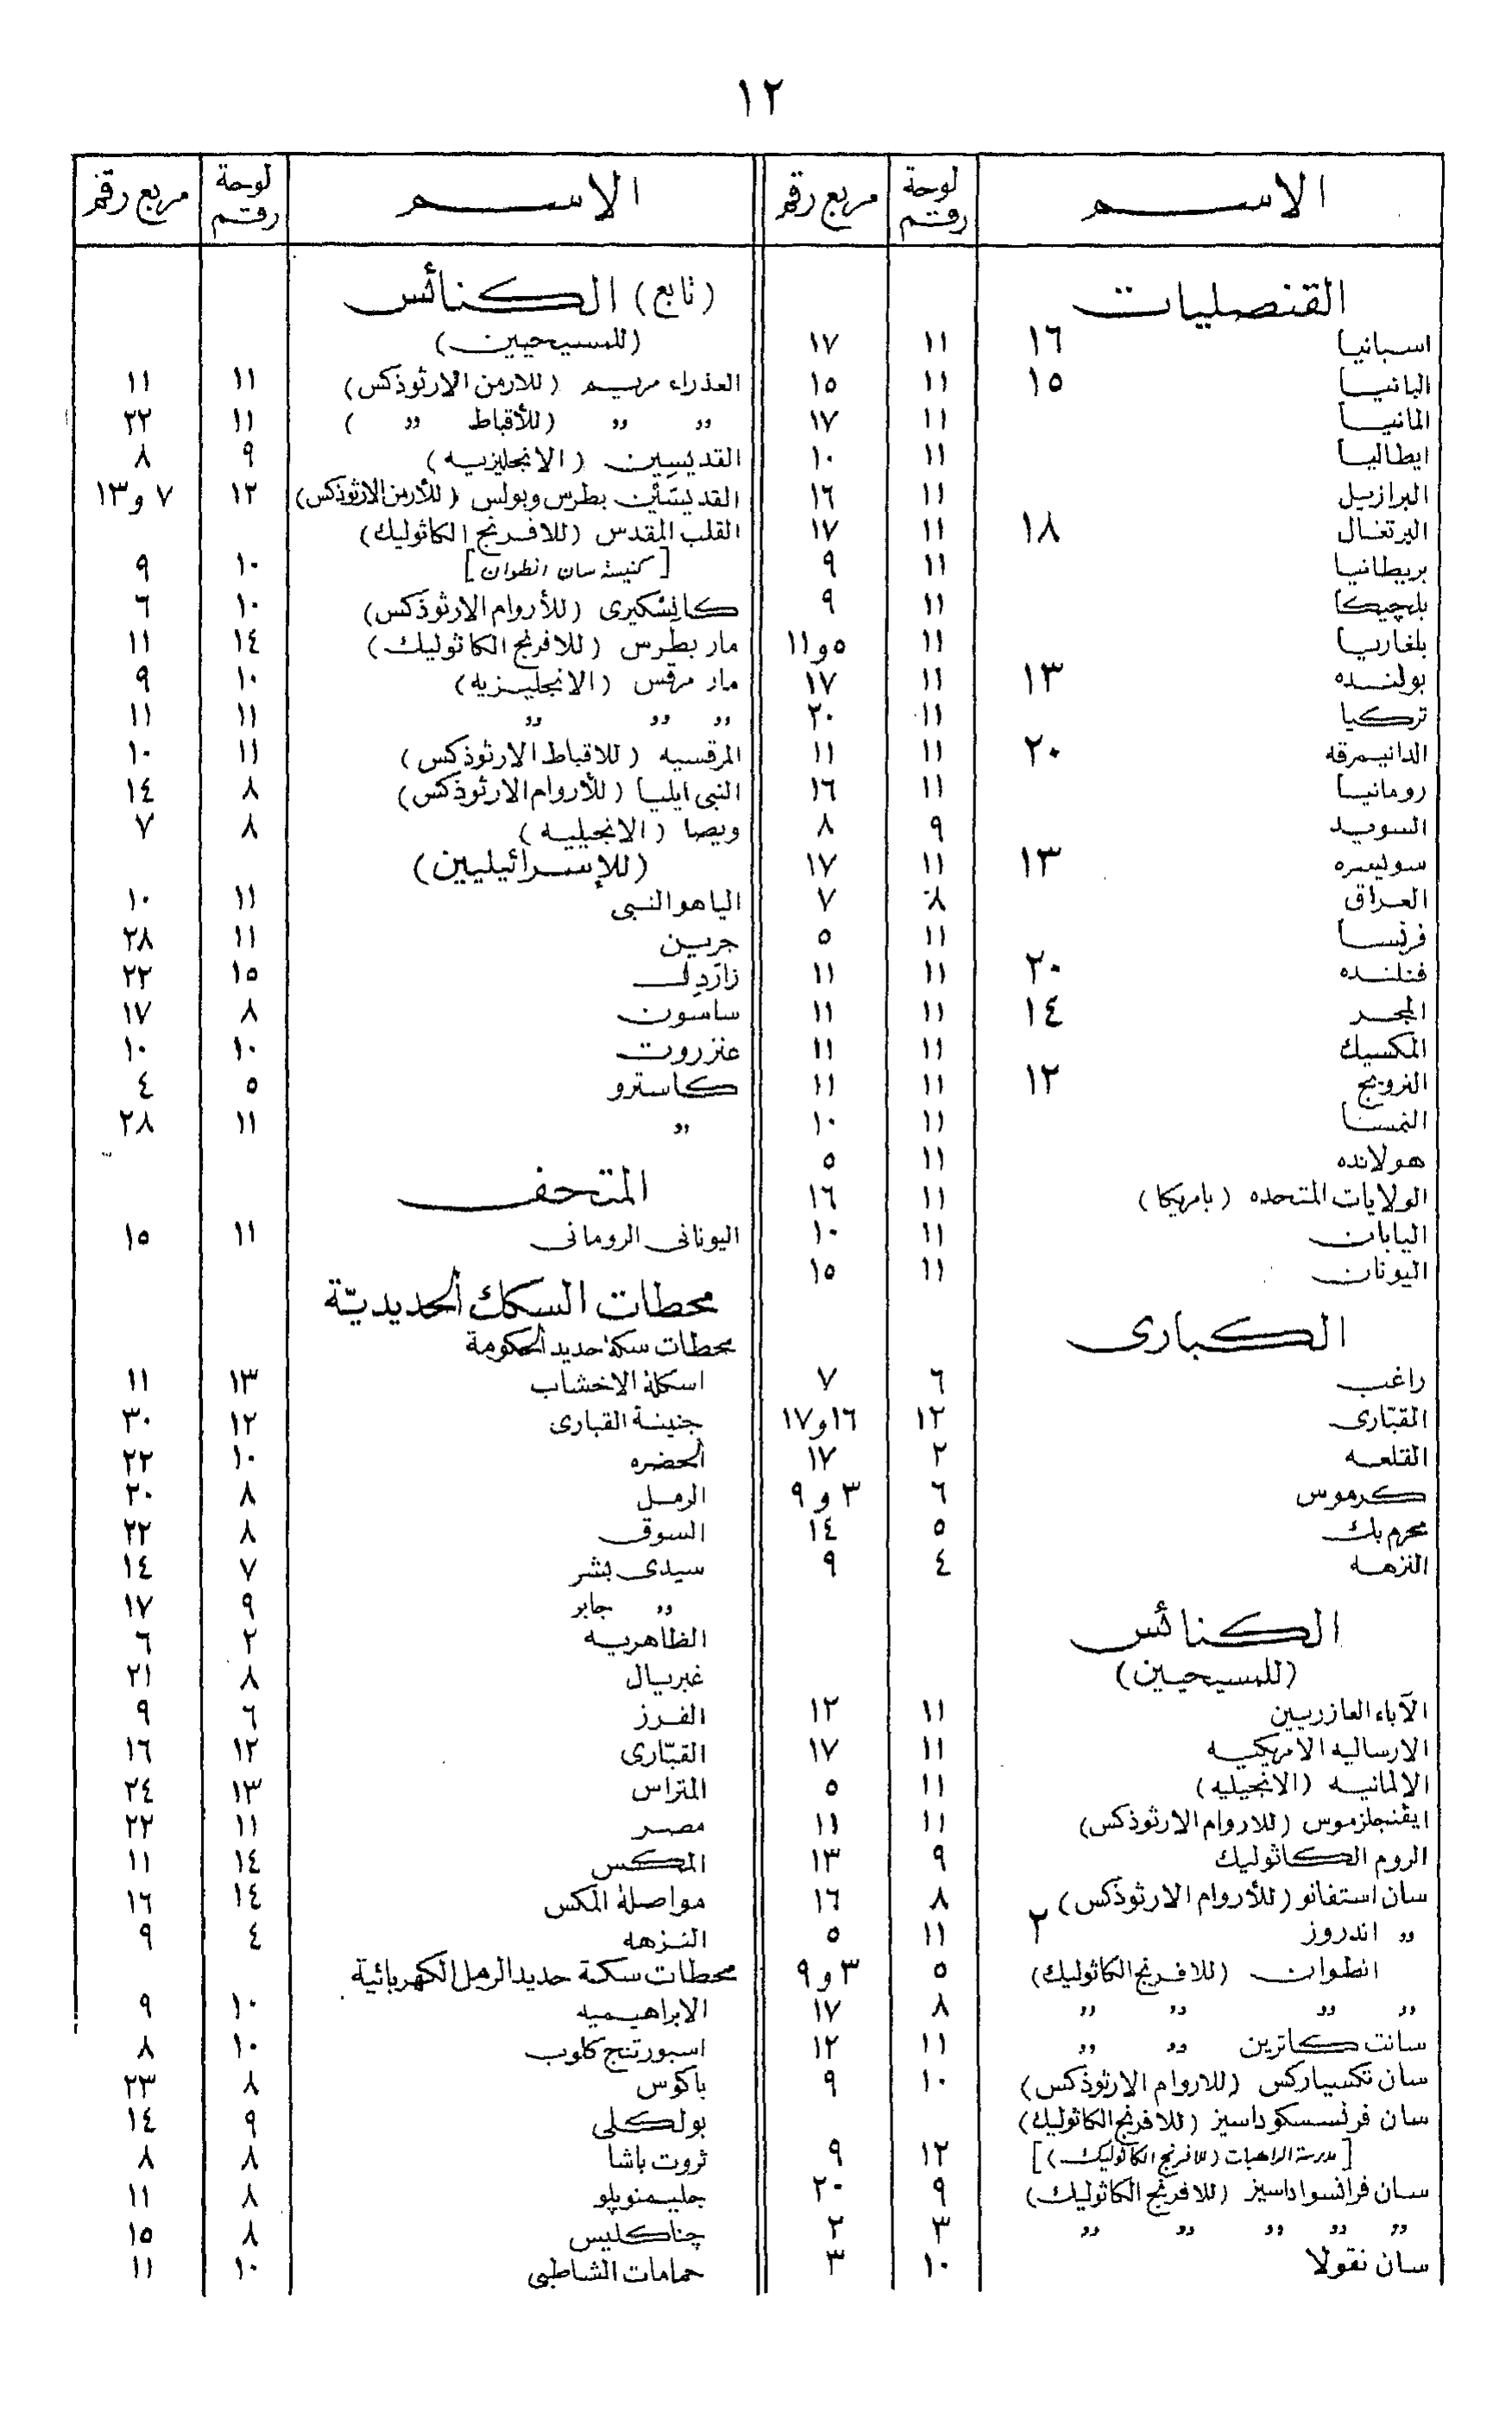 ١٢
الاسم	لوحة رقم	مربع رقم
القنصليات
اسبانيا ١٦	١١	١٧
البانيا ١٥	١١	١٥
المانيا	١١	١٧
ايطاليا	١١	١٠
البرازيل	١١	١٦
البرتغال ١٨	١١	١٧
بريطانيا	١١	٩
بلچيكا	١١	٩
بلغاريا	١١	٥ و ١١
بولنده ١٣	١١	١٧
تركيا	١١	٢٠
الدانيمرقه ٢٠	١١	١١
رومانيا	١١	١٦
السويد	٩	٨
سوليسره ١٣	١١	١٧
العراق	٨	٧
فرنسا	١١	٥
فنلنده ٢٠	١١	١١
المجر ١٤	١١	١١
المكسيك	١١	١١
النرويج ١٢	١١	١١
النمسا	١١	١٠
هولانده	١١	٥
الولايات المتحده (بامريكا)	١١	١٦
اليابان	١١	١٠
اليونان	١١	١٥
الكبارى
راغب	٦	٧
القبّارى	١٢	١٦ و ١٧
القلعه	٢	١٧
كرموس	٦	٣ و ٩
محرم بك	٥	١٤
النزهه	٤	٩
الكنائس
(للمسيحيين)
الآباء العازريين	١١	١٢
الارساليه الامريكيه	١١	١٧
الالمانيه (الانجيليه)	١١	٥
ايڤنجلزموس (للاروام الارثوذكس)	١١	١١
الروم الكاثوليك	٩	١٣
سان استفانو (للأروام الارثوذكس)	٨	١٦
„ اندروز ٢	١١	٥
انطوان (للافرنج الكاثوليك)	٥	٣ و ٩
„ „ „ „	٨	١٧
سانت كاترين „ „	١١	١٢
سان تكسياركس (للاروام الارثوذكس)	١٠	٩
سان فرنسسكو داسيز (للافرنج الكاثوليك)
[مدرسة الراهبات (للافرنج الكاثوليك)]	١٢	٩
سان فرانسوا داسيز (للافرنج الكاثوليك)	٩	٢٠
„ „ „ „ „	٣	٢
سان نقولا	١٠	٣
الاسم	لوحة رقم	مربع رقم
(تابع) الكنائس
(للمسيحيين)
العذراء مريم (للارمن الارثوذكس)	١١	١١
„ „ (للأقباط „ )	١١	٢٢
القديسين (الانجليزيه)	٩	٨
القديسَيْن بطرس وبولس (للأرمن الارثوذكس)	١٢	٧ و ١٣
القلب المقدس (للافرنج الكاثوليك)
[كنيسة سان انطوان]	١٠	٩
كانِسْكيرى (للأروام الارثوذكس)	١٠	٦
مار بطرس (للافرنج الكاثوليك)	١٤	١١
مار مرقس (الانجليزيه)	١٠	٩
„ „ „	١١	١١
المرقسيه (للاقباط الارثوذكس)	١١	١٠
النبى ايليا (للأروام الارثوذكس)	٨	١٤
ويصا (الانجيليه)	٨	٧
(للإسرائيليين)
الياهو النبى	١١	١٠
جرين	١١	٢٨
زارَدِل	١٥	٢٢
ساسون	٨	١٧
عنزروت	١٠	١٠
كاسترو	٥	٤
„	١١	٢٨
المتحف
اليونانى الرومانى	١١	١٥
محطات السكك الحديديّة
محطات سكة حديد الحكومة
اسكلة الاخشاب	١٣	١١
جنينة القبارى	١٢	٣٠
الحضره	١٠	٢٢
الرمل	٨	٢٠
السوق	٨	٢٢
سيدى بشر	٧	١٤
„ جابر	٩	١٧
الظاهريه	٢	٦
غبريال	٨	٢١
الفرز	٦	٩
القبّارى	١٢	١٦
المتراس	١٣	٢٤
مصر	١١	٢٢
المكس	١٤	١١
مواصلة المكس	١٤	١٦
النزهه	٤	٩
محطات سكة حديد الرمل الكهربائية
الابراهيميه	١٠	٩
اسبورتنج كلوب	١٠	٨
باكوس	٨	٢٣
بولكلى	٩	١٤
ثروت باشا	٨	٨
جليمنوپلو	٨	١١
چناكليس	٨	١٥
حمامات الشاطبى	١٠	١١